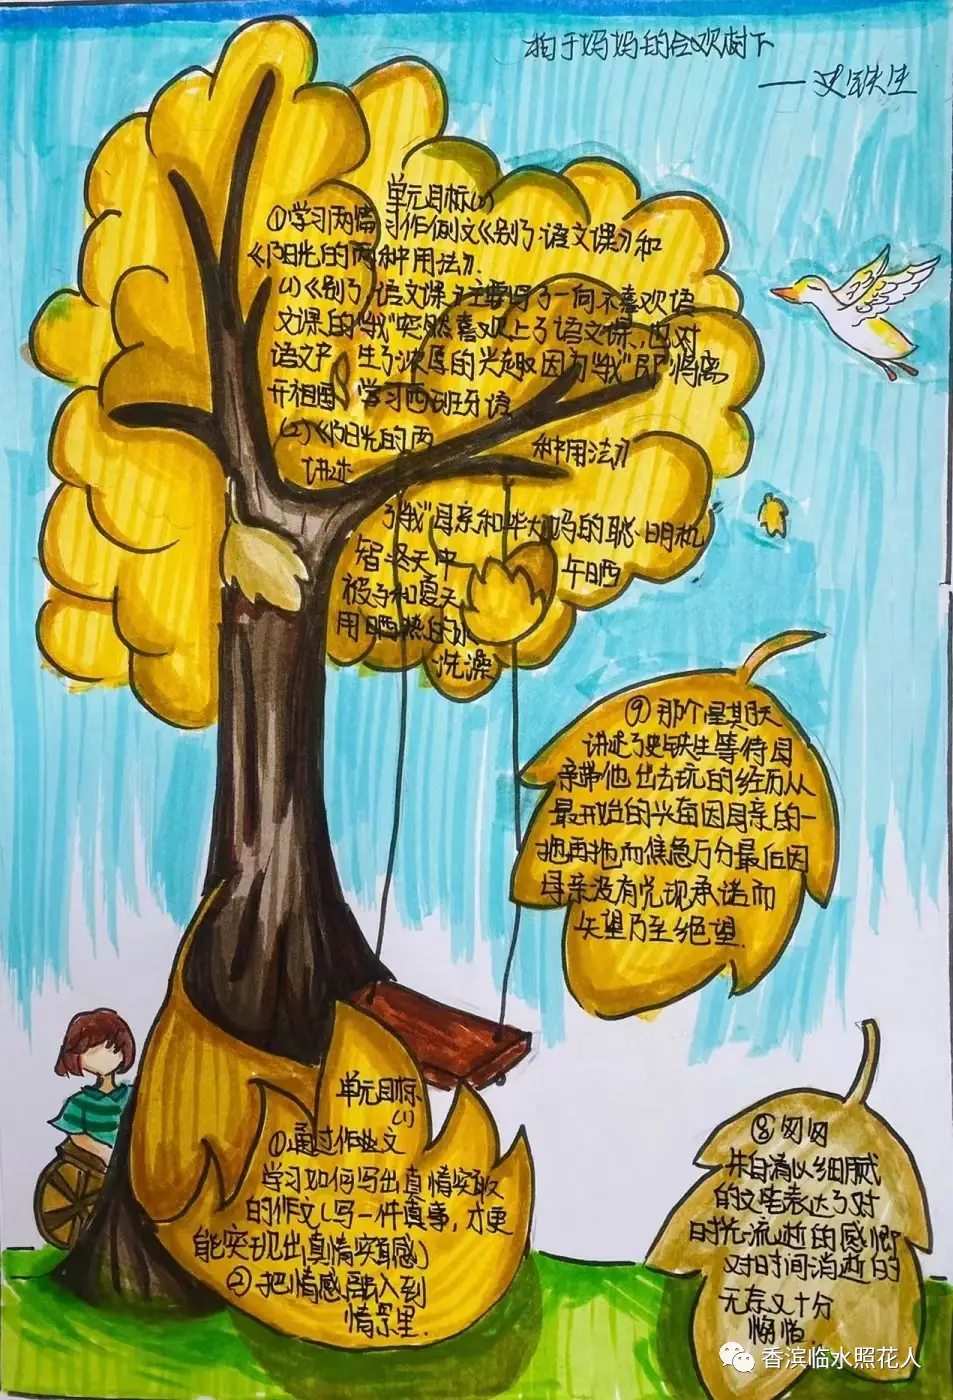 拍于妈妈的合欢树下
——史铁生
单元目标(2)
①学习两篇习作例文《别了,语文课》和
《阳光的两种用法》.
(1)《别了,语文课》主要写了一向不喜欢语
文课的“我”突然喜欢上了语文课,也对
语文产生了浓厚的兴趣因为“我”即将离
开祖国,学习西班牙语
(2)《阳光的两种用法》
讲述
了“我”母亲和毕大妈的聪明机
智冬天中午晒
被子和夏天
用晒热的水
洗澡
⑨那个星期天
讲述了史铁生等待母
亲带他出去玩的经历从
最开始的兴奋因母亲的一
拖再拖而焦急万分最后因
母亲没有兑现承诺而
失望乃至绝望.
单元目标
(1)
①通过作文
学习如何写出真情实
的作文(写一件真事,才更
能实现出真情实感)
②把情感融入到
情景里.
⑧匆匆
朱自清以细腻
的文笔表达了对
时光流逝的感慨
对时间消逝的
无奈又十分
惋惜.
香滨临水照花人